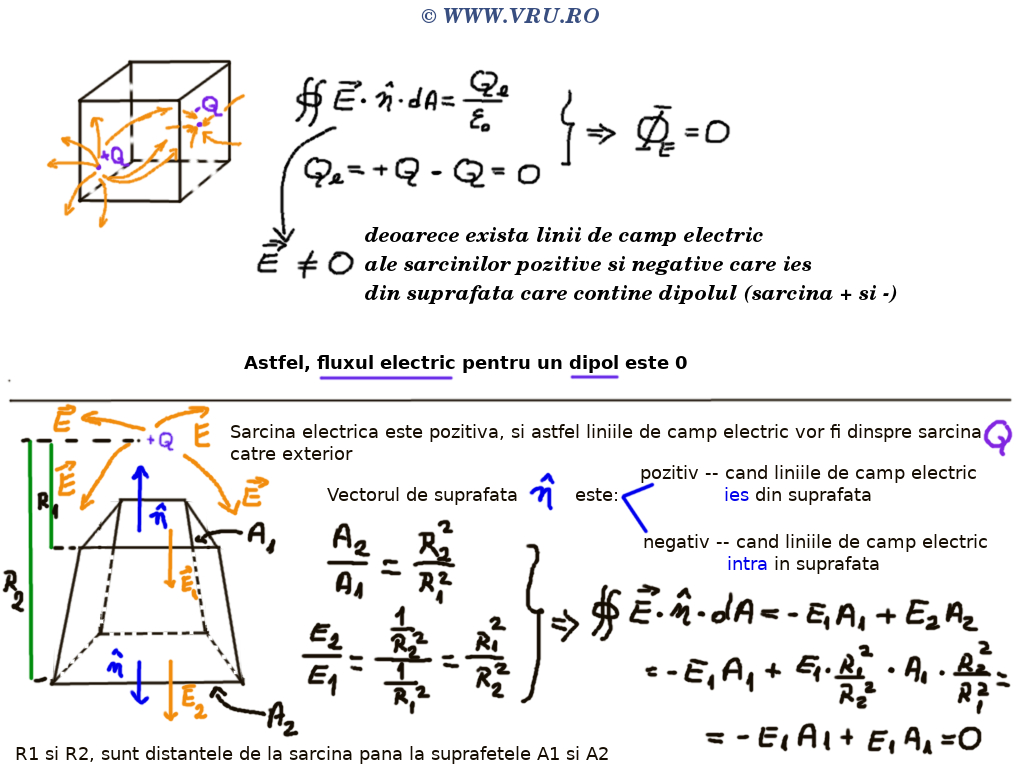 © WWW.VRU.RO
-Q
+Q
∯ E⃗ · n̂ · dA = Qe/ε₀
Qe = + Q - Q = 0
⇒ Φ_E = 0
E⃗ ≠ 0
deoarece exista linii de camp electric
ale sarcinilor pozitive si negative care ies
din suprafata care contine dipolul (sarcina + si -)
Astfel, fluxul electric pentru un dipol este 0
E⃗
+Q
E
E⃗
E⃗
Sarcina electrica este pozitiva, si astfel liniile de camp electric vor fi dinspre sarcina Q
catre exterior
Vectorul de suprafata n̂ este:
pozitiv -- cand liniile de camp electric
ies din suprafata
negativ -- cand liniile de camp electric
intra in suprafata
R₁
n̂
A₁
E⃗₁
R₂
n̂
E⃗₂
A₂
A₂/A₁ = R₂²/R₁²
E₂/E₁ = (1/R₂²)/(1/R₁²) = R₁²/R₂²
⇒ ∯ E⃗ · n̂ · dA = - E₁A₁ + E₂A₂
= - E₁A₁ + E₁ · R₁²/R₂² · A₁ · R₂²/R₁² =
= - E₁A₁ + E₁A₁ = 0
R1 si R2, sunt distantele de la sarcina pana la suprafetele A1 si A2